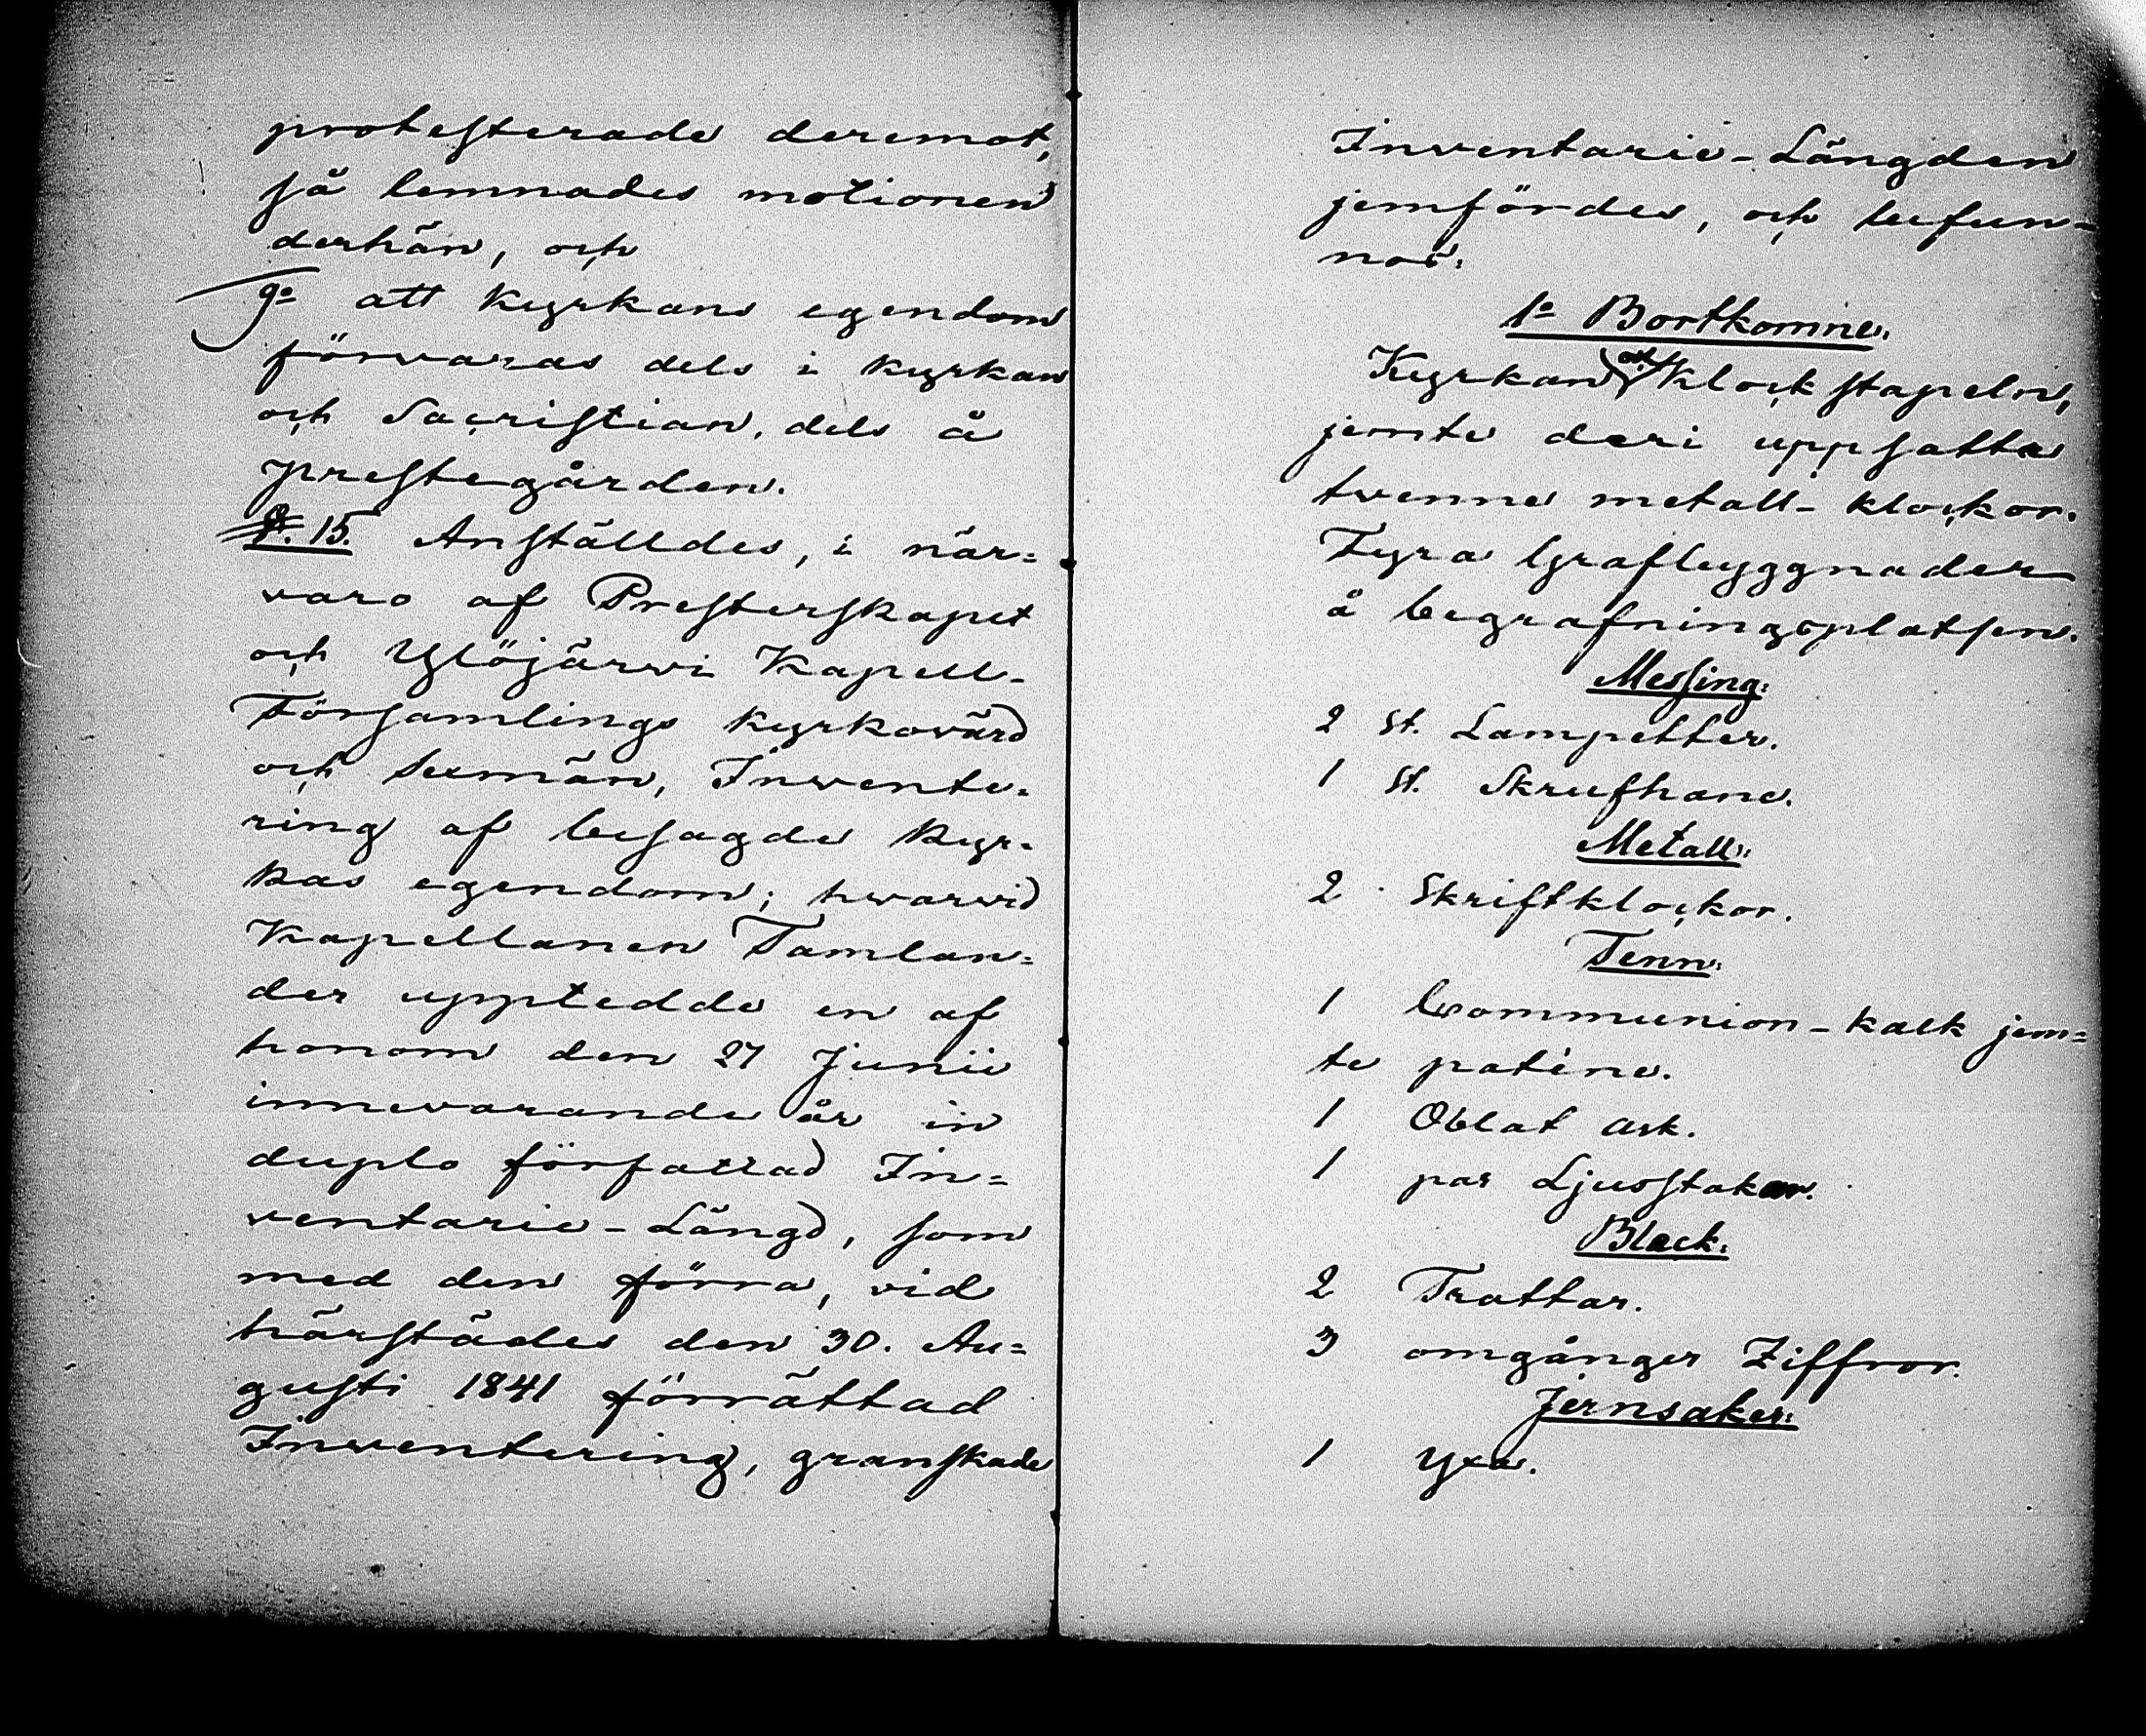 protesterade deremot,
så lemnades motionen
derhän, och
9o att Kyrkans egendom
förvaras dels i kyrkan
och Sacristian, dels å
prestegården.
§. 15. Anställdes, i när=
varo af Presterskapet
och Ylöjärvi Kapell-
Församlings kyrkovärd
och sexmän, Invente=
ring af besagde Kyr=
kas egendom; hvarvid
Kapellanen Tamlan=
der upptedde en af
honom den 27 Junii
innevarande år in
duplo författad In=
ventarie-Längd, som
med den förra, vid
härstädes den 30. Au=
gusti 1841 förrättad
Inventering, granskade
Inventarie-Längden
jemfördes, och befun=
nos:
1o Bortkomne.
Kyrkan och Klockstapeln,
jemte deri uppsatta
tvenne metall-klockor.
Fyra Grafbyggnader
å begrafningsplatsen.
Messing:
2 st. Lampetter.
1 st. Skrufhane.
Metall:
2 Skriftklockor.
Tenn:
1 Communion-kalk jem=
te paténe.
1 Oblat ask.
1 par Ljusstakar.
Bleck:
2 Trattar.
3 omgånger Ziffror.
Jernsaker:
1 Yxa.